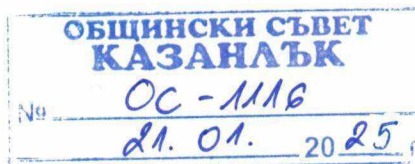 ОБЩИНСКИ СЪВЕТ
КАЗАНЛЪК
№ ОС-1116
21. 01. 2025